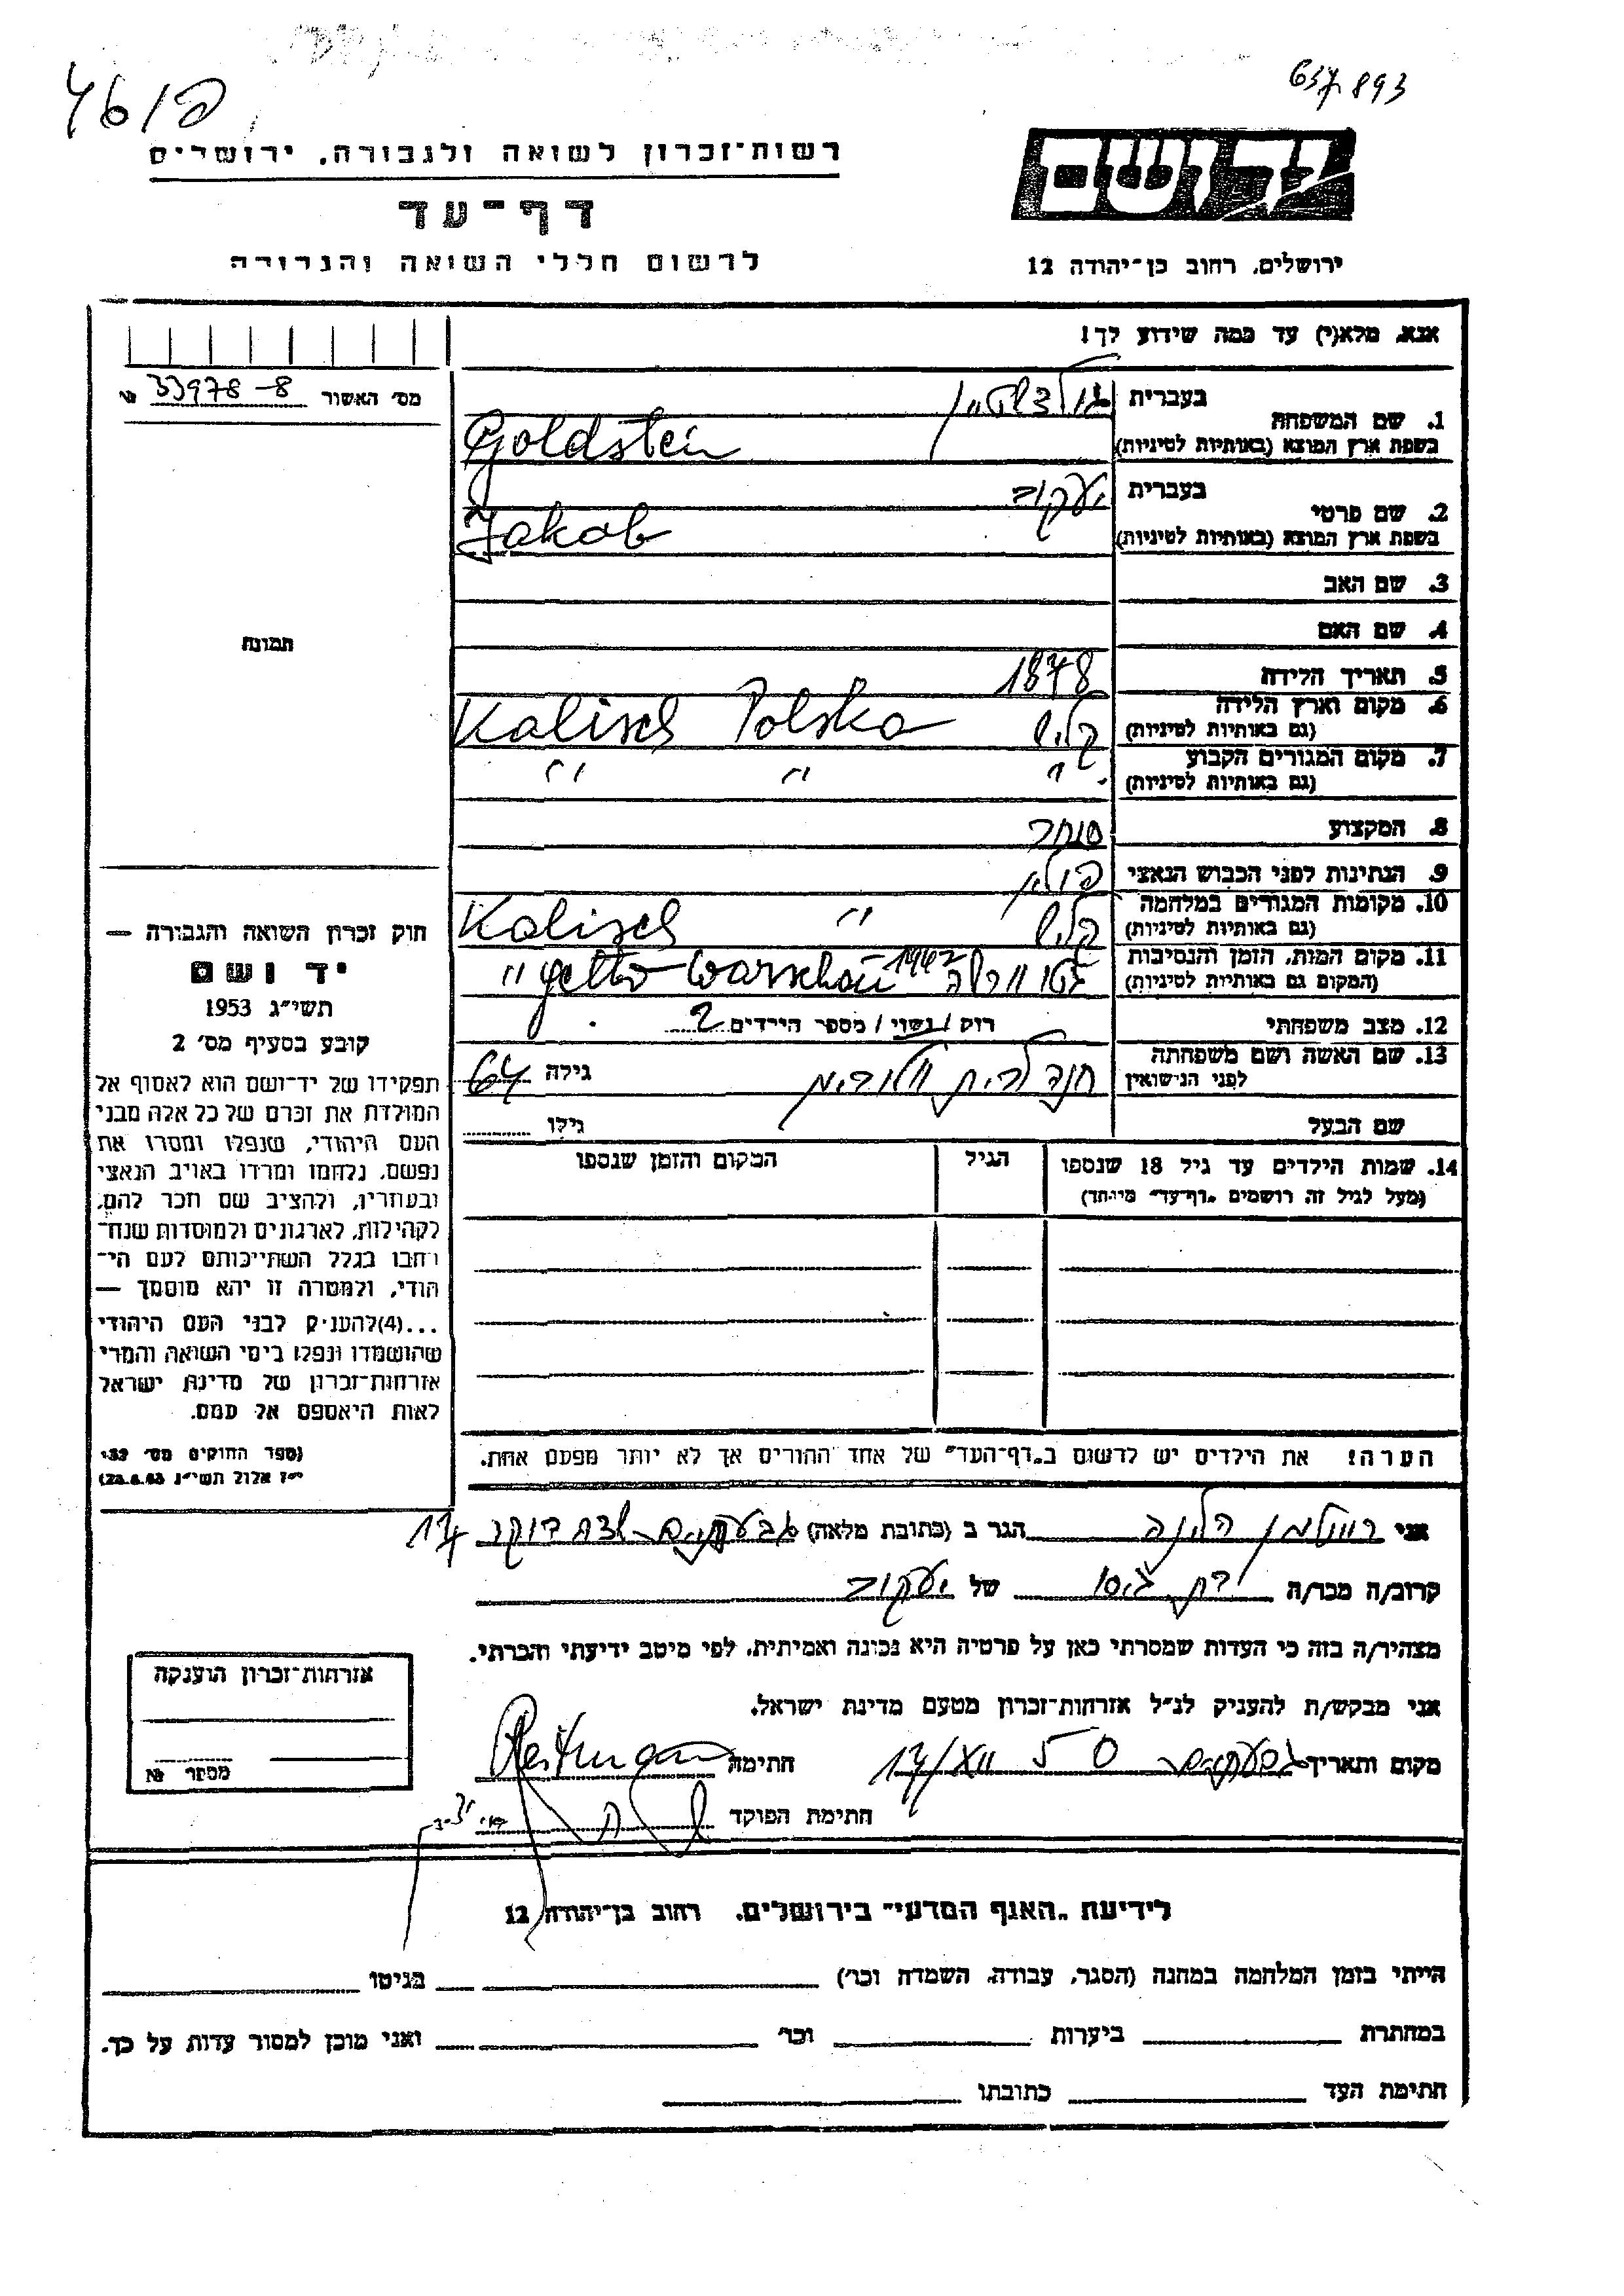 637893
461פ
ידושם
רשות־זכרון לשואה ולגבורה, ירושלים
דף־עד
ירושלים, רחוב בן־יהודה 12
לרשום חללי השואה והגבורה
אנא, מלא(י) עד כמה שידוע לך!
מס׳ האשור 33978-8 №
1. שם המשפחה
בעברית גולדשטיין
בשפת ארץ המוצא (באותיות לטיניות) Goldstein
2. שם פרטי
בעברית יעקוב
בשפת ארץ המוצא (באותיות לטיניות) Jakob
3. שם האב
4. שם האם
תמונה
5. תאריך הלידה 1878
6. מקום וארץ הלידה
(גם באותיות לטיניות) קליש Kalisch Polska
7. מקום המגורים הקבוע
(גם באותיות לטיניות) " " "
8. המקצוע סוחר
9. הנתינות לפני הכבוש הנאצי פולין
10. מקומות המגורים במלחמה
(גם באותיות לטיניות) קליש " Kalisch
11. מקום המות, הזמן והנסיבות
(המקום גם באותיות לטיניות) גטו וורשה 1942 getto Warschau "
12. מצב משפחתי רוק / נשוי / מספר הילדים 2
13. שם האשה ושם משפחתה
לפני הנישואין חנה לבית גילה 64
שם הבעל גילו
14. שמות הילדים עד גיל 18 שנספו
(מעל לגיל זה רושמים „דף־עד״ מיוחד)
הגיל
המקום והזמן שנספו
חוק זכרון השואה והגבורה —
יד ושם
תשי״ג 1953
קובע בסעיף מס׳ 2
תפקידו של יד־ושם הוא לאסוף אל
המולדת את זכרם של כל אלה מבני
העם היהודי, שנפלו ומסרו את
נפשם, נלחמו ומרדו באויב הנאצי
ובעוזריו, ולהציב שם וזכר להם,
לקהילות, לארגונים ולמוסדות שנח־
רבו בגלל השתייכותם לעם הי־
הודי, ולמטרה זו יהא מוסמך —
...(4)להעניק לבני העם היהודי
שהושמדו ונפלו בימי השואה והמרי
אזרחות־זכרון של מדינת ישראל
לאות היאספם אל עמם.
(ספר החוקים מס׳ 132
י״ז אלול תשי״ג 28.8.53)
הערה! את הילדים יש לרשום ב„דף־העד״ של אחד ההורים אך לא יותר מפעם אחת.
אני הגר ב (כתובת מלאה) גבעתיים 17
קרוב/ה מכר/ה בת גיסו של יעקוב
מצהיר/ה בזה כי העדות שמסרתי כאן על פרטיה היא נכונה ואמיתית, לפי מיטב ידיעתי והכרתי.
אני מבקש/ת להעניק לנ״ל אזרחות־זכרון מטעם מדינת ישראל.
מקום ותאריך גבעתיים חתימה
חתימת הפוקד
אזרחות־זכרון הוענקה
מספר №
לידיעת „האגף המדעי״ בירושלים, רחוב בן־יהודה 12
הייתי בזמן המלחמה במחנה (הסגר, עבודה, השמדה וכו׳) בגיטו
במחתרת ביערות וכו׳ ואני מוכן למסור עדות על כך.
חתימת העד כתובתו